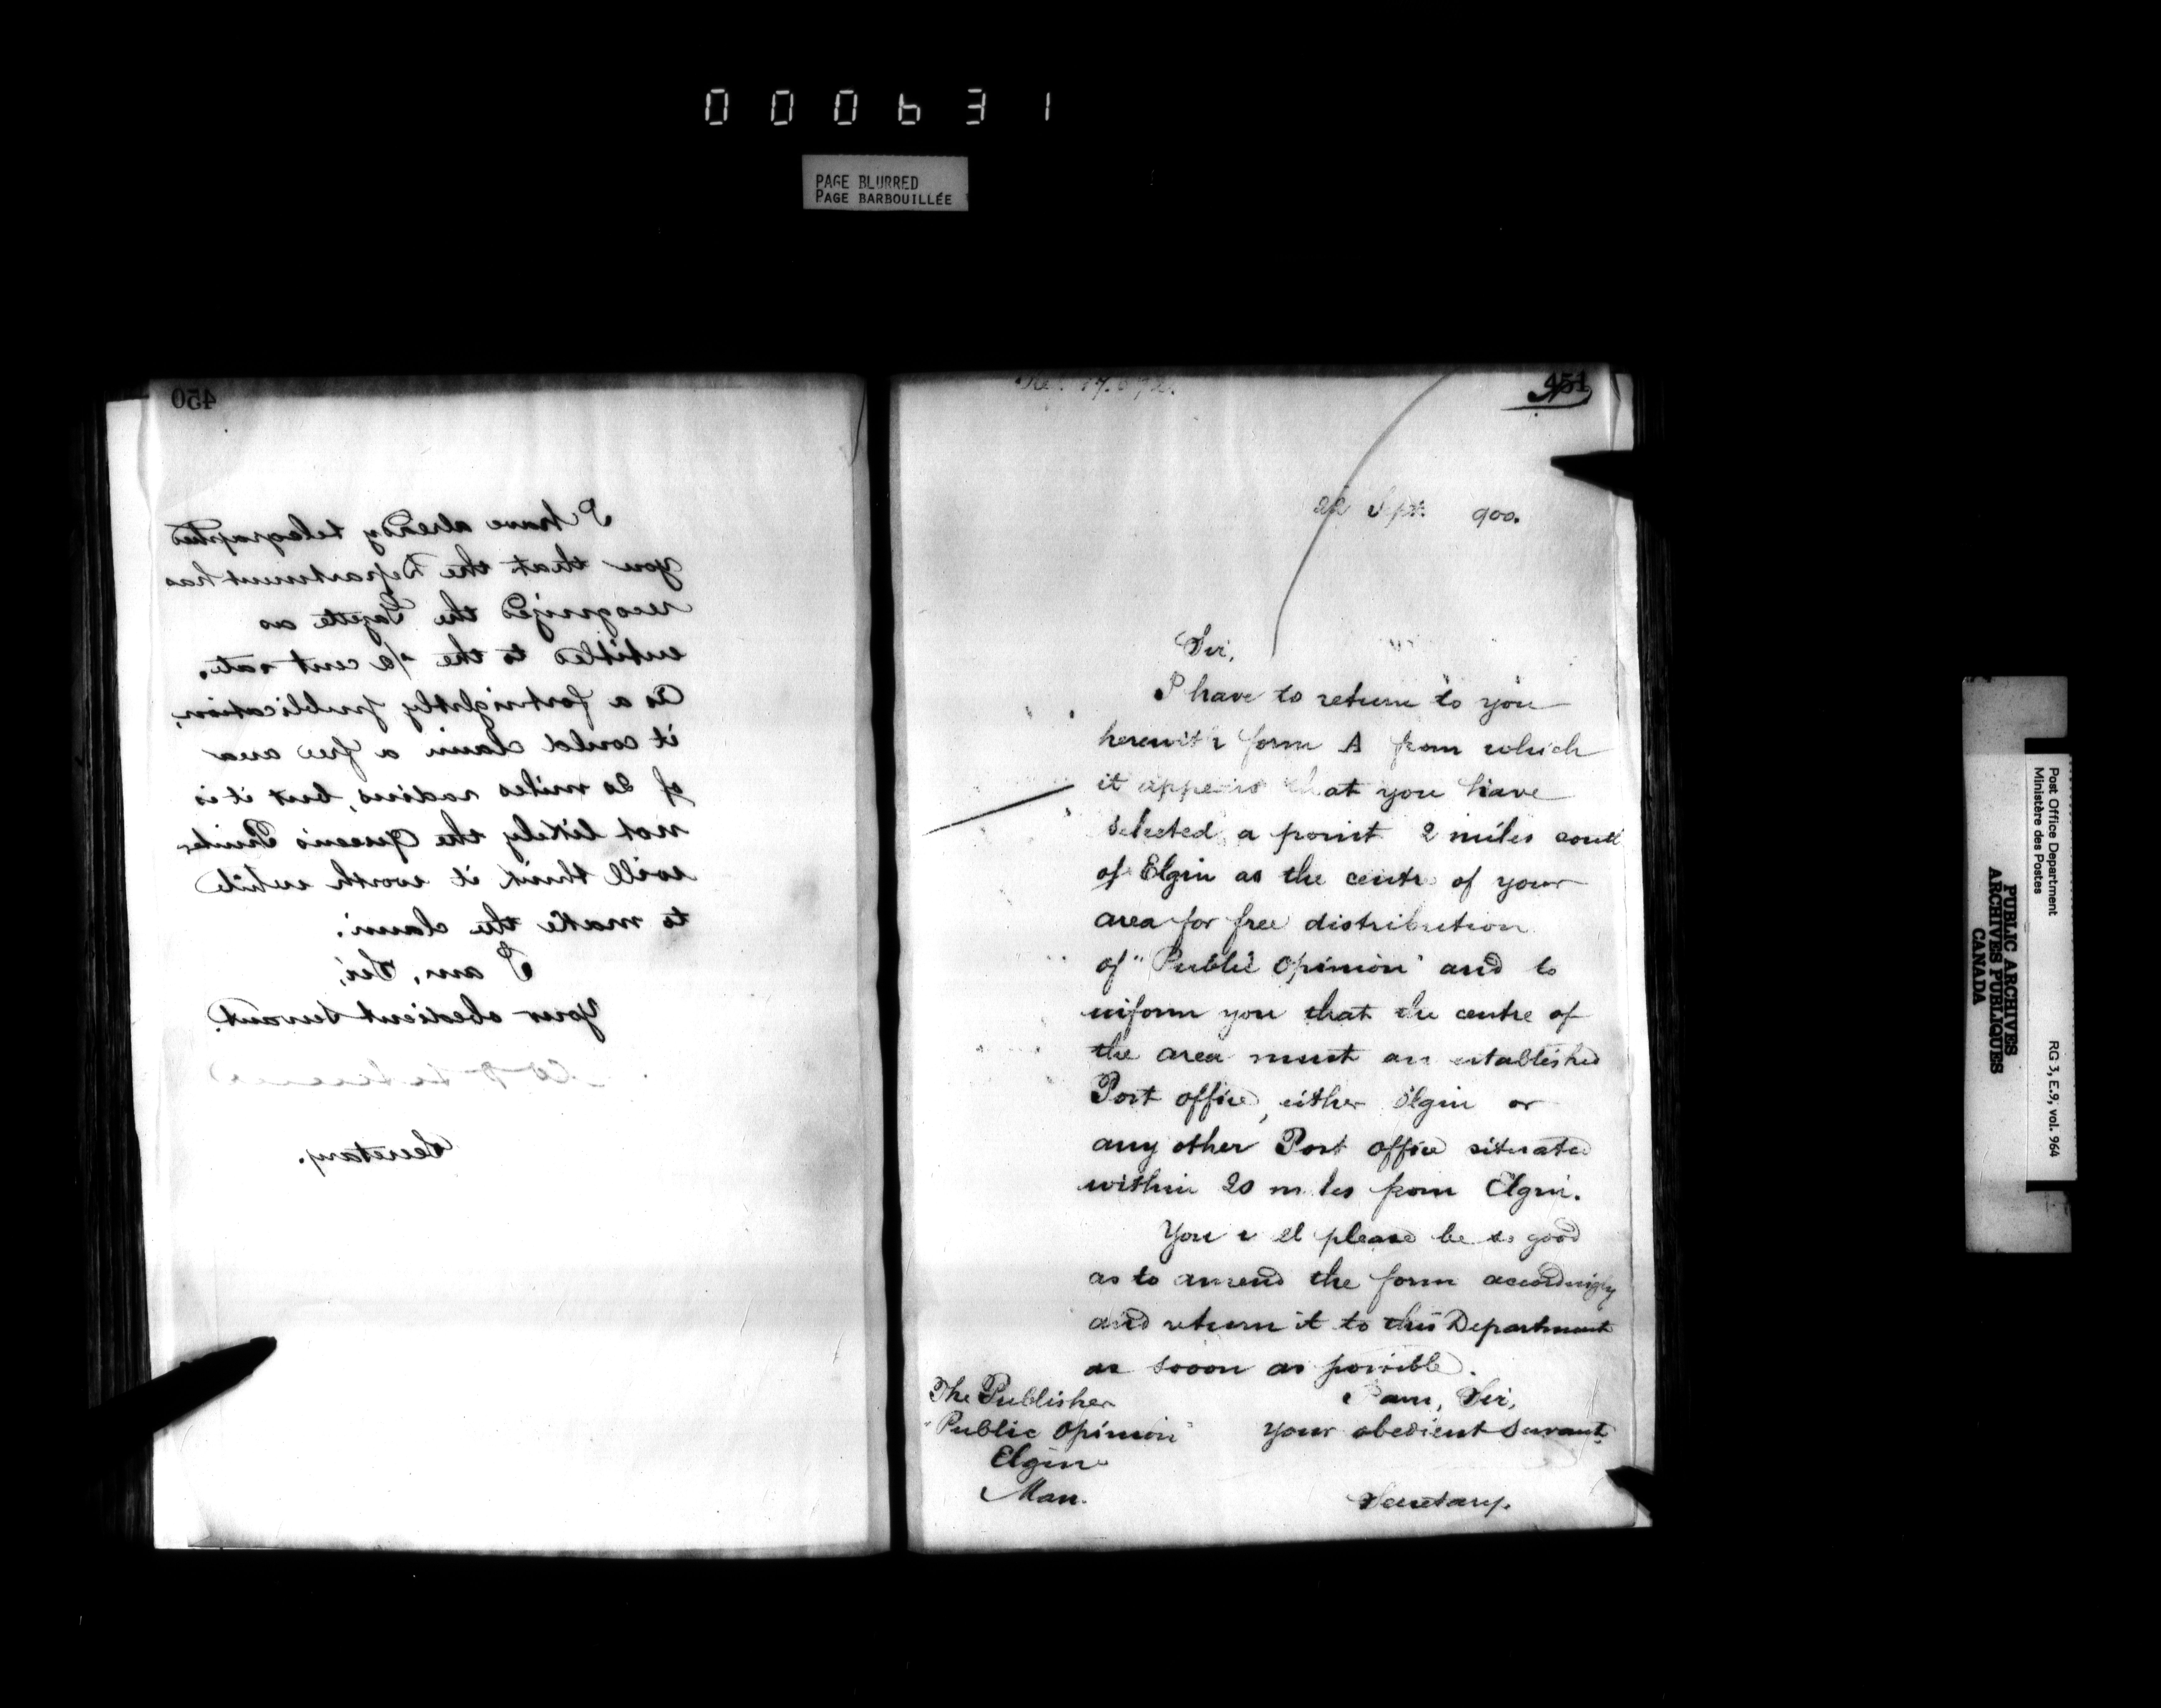 000631
PAGE BLURRED
PAGE BARBOUILLÉE
450
I have already telegraphed
you that the Department has
recognized the Gazette as
entitled to the 1/2 cent rate.
As a fortnightly publication,
it could claim a free area
of 20 miles radius, but it is
not likely the Queen's Printer
will think it worth while
to make the claim.
I am, Sir,
Your obedient Servant.
Secretary.
451
22 Sept. 900.
Sir,
I have to return to you
herewith form A from which
it appears that you have
selected a point 2 miles south
of Elgin as the centre of your
area for free distribution
of "Public Opinion" and to
inform you that the centre of
the area must an established
Post office, either Elgin or
any other Post office situated
within 20 miles from Elgin.
You will please be so good
as to amend the form accordingly
and return it to this Department
as sooon as possible.
I am, Sir,
Your obedient Servant.
Secretary.
The Publisher
"Public Opinion"
Elgin
Man.
Post Office Department
Ministère des Postes
RG 3, E.9, vol. 964
PUBLIC ARCHIVES
ARCHIVES PUBLIQUES
CANADA